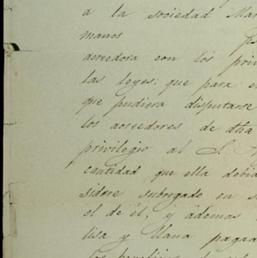 a la sociedad Mar
manos
acreedora con los pri
las leyes; que para e
que pudiera disputarse
los acreedores de dha
privilegio al S.
cantidad que ella debia
sidore subrogado en s
el de él, y ademas
lisa y llana paga